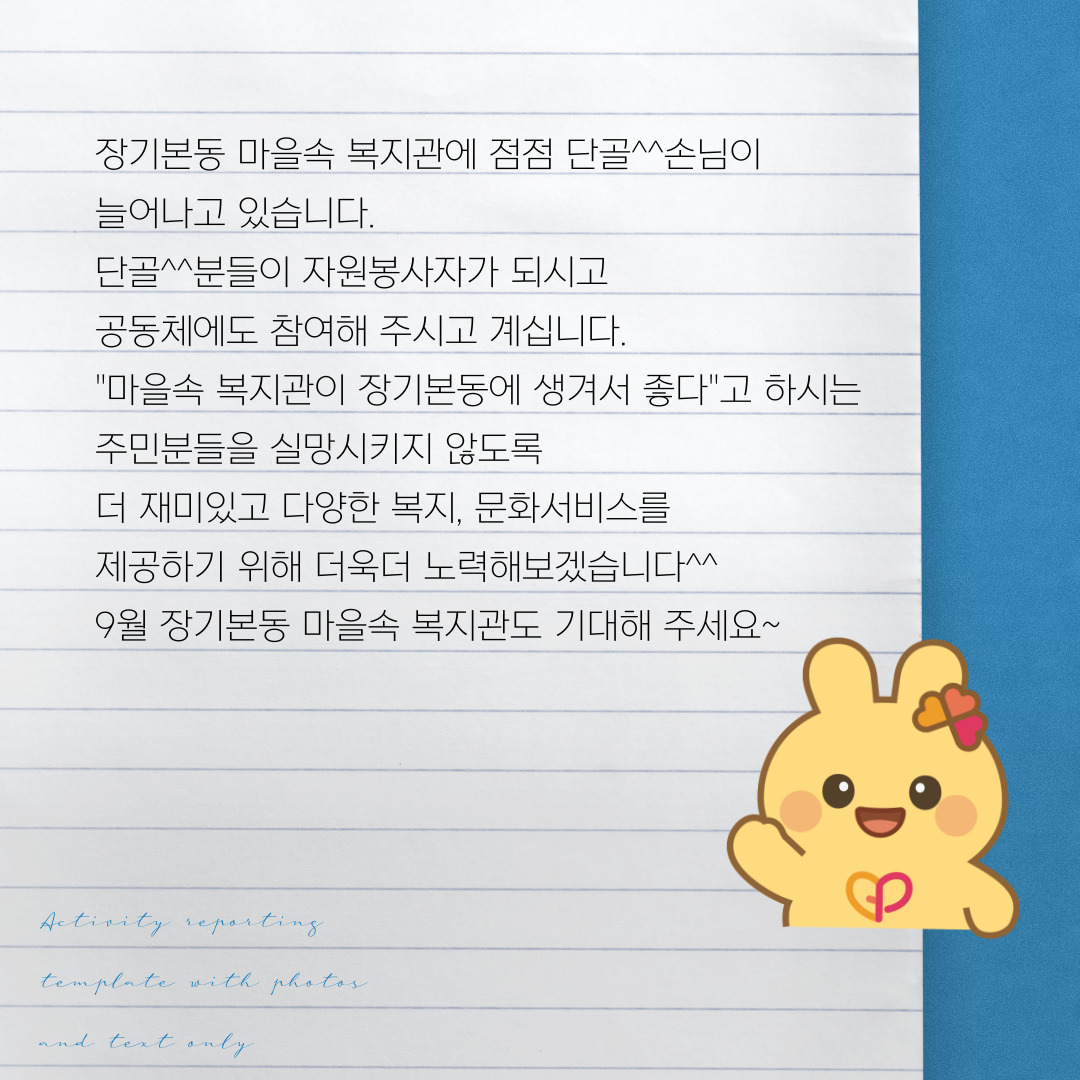 장기본동 마을속 복지관에 점점 단골^^손님이
늘어나고 있습니다.
단골^^분들이 자원봉사자가 되시고
공동체에도 참여해 주시고 계십니다.
"마을속 복지관이 장기본동에 생겨서 좋다"고 하시는
주민분들을 실망시키지 않도록
더 재미있고 다양한 복지, 문화서비스를
제공하기 위해 더욱더 노력해보겠습니다^^
9월 장기본동 마을속 복지관도 기대해 주세요~
Activity reporting
template with photos
and text only